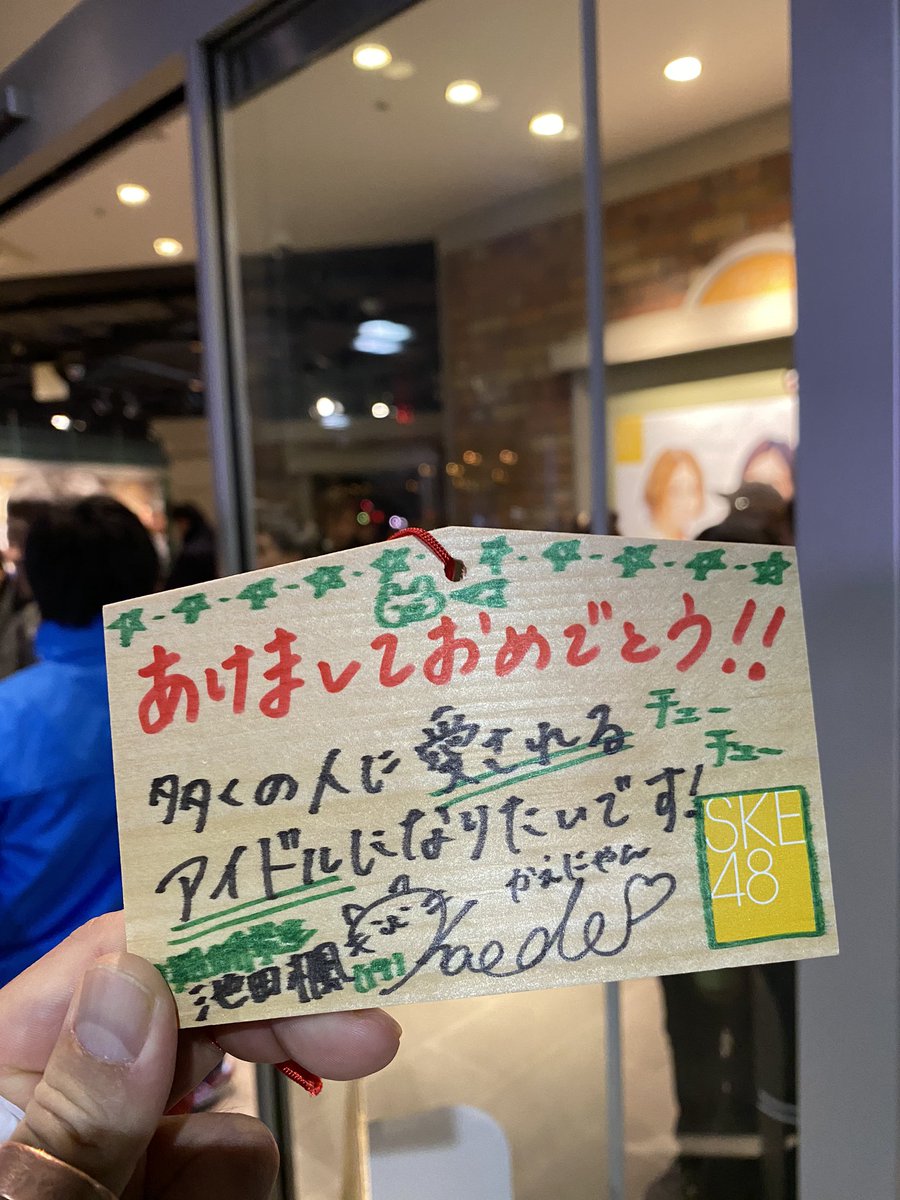 あけましておめでとう!!
多くの人に愛される
チュー
チュー
アイドルになりたいです!
SKE
48
かえにゃん
Kaede
池田楓